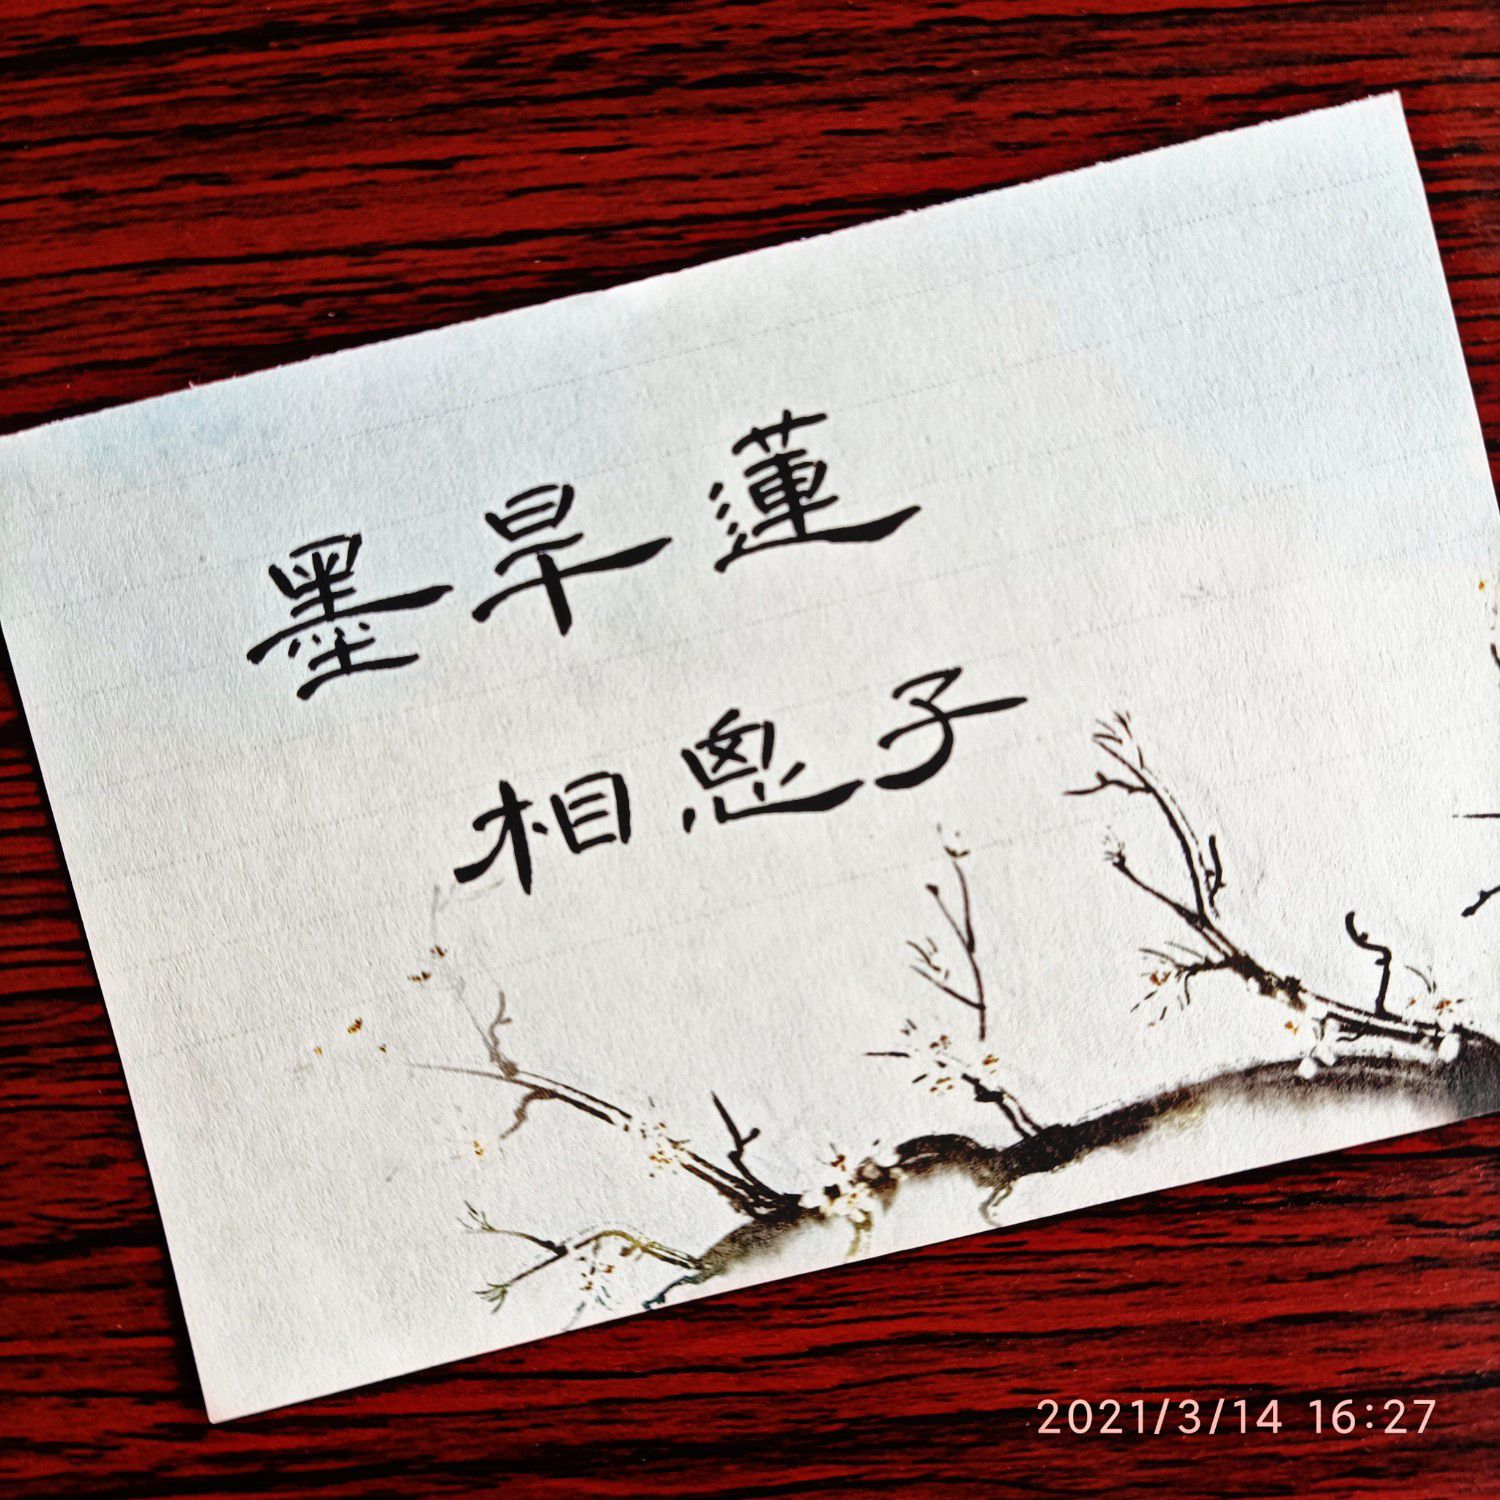 墨旱蓮
相思子
2021/3/14 16:27